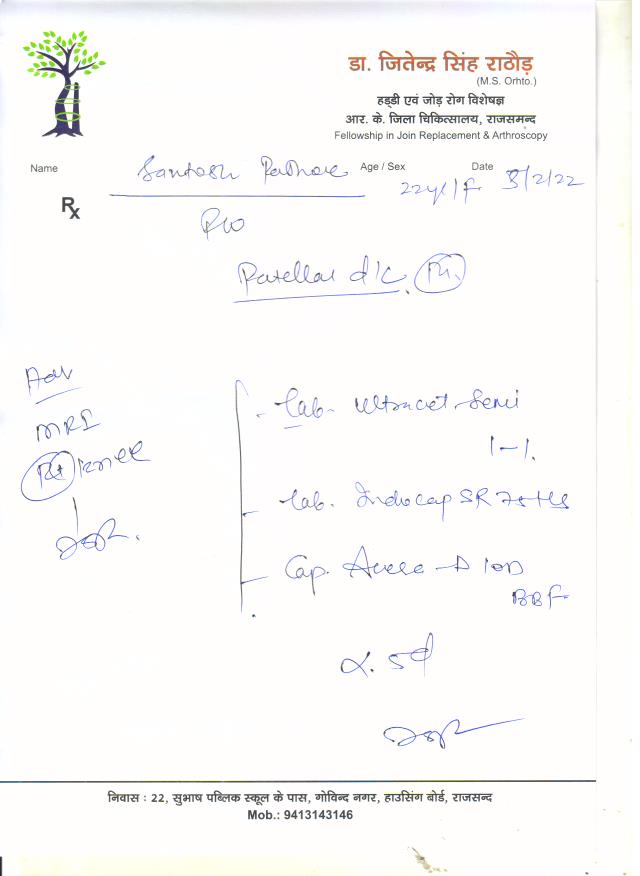 डा. जितेन्द्र सिंह राठौड़
(M.S. Orhto.)
हड्डी एवं जोड़ रोग विशेषज्ञ
आर. के. जिला चिकित्सालय, राजसमन्द
Fellowship in Join Replacement & Arthroscopy
Name Santosh Rathore Age / Sex 22yr/F Date 3/2/22
Rx
Patellar d/c. Rt.
Adv
MRI
Rt Knee
Tab. Ultracet Semi
1-1.
Tab. Indocap SR 75
Cap. D 1OD
BBF
निवास : 22, सुभाष पब्लिक स्कूल के पास, गोविन्द नगर, हाउसिंग बोर्ड, राजसन्द
Mob.: 9413143146